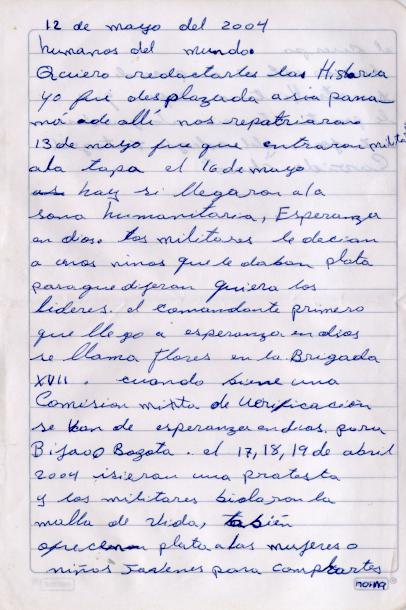 12 de mayo del 2004
humanos del mundo.
Quiero redactarles la Historia
yo fui desplazada asia pana
má ade allí nos repatriaron
13 de mayo fue que entraron milita
a la tapa el 16 de mayo
hay si llegaron a la
sona humanitaria, Esperanza
en dios. los militares le decian
a unos ninos que le daban plata
para que dijeran quiera los
lideres. el comandante primero
que llego a esperanza en dios
se llama flores en la Brigada
XVII. cuando biene una
Comision mixta de Verificación
se van de esperanza en dios. para
Bijao Bogota. el 17, 18, 19 de abril
2004 isieran una protesta
y los militares biolaron la
malla de vida, tabién
plata a las mujeres o
niños Jovenes para comprarles
norma